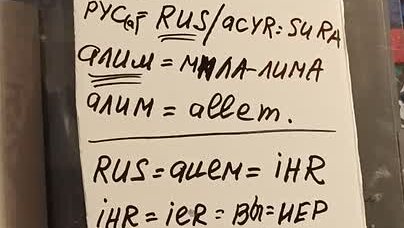 РУС(ы)= RUS/ACYR=SURA
алим = МИЛА-ЛИМА
алим = allem.
RUS = алем = iHR
iHR = ieR = Вы = НЕР